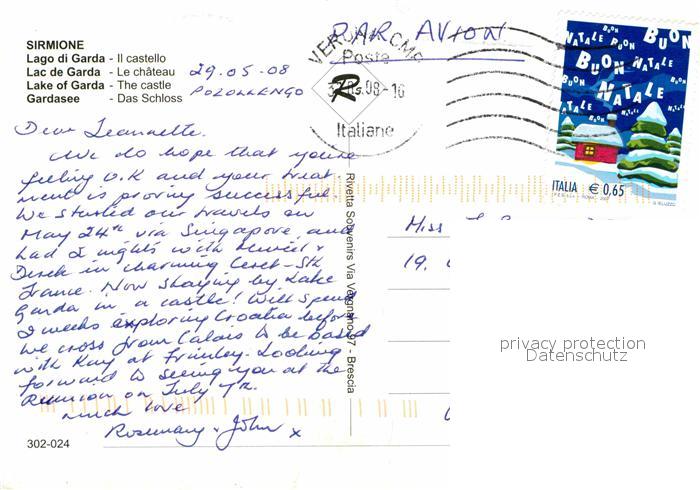 SIRMIONE
Lago di Garda - Il castello
Lac de Garda - Le château
Lake of Garda - The castle
Gardasee - Das Schloss
29.05-08
PAR AVION
VERONA CMP
Poste
05.08-16
Italiane
BUON NATALE
ITALIA € 0,65
Dear Jeannette.
We do hope that you're
feeling O.K and your treat-
ment is proving successful.
We started our travels on
May 24th via Singapore and
had 2 nights with &
Derek in charming Ceret - Sth
France. Now staying by Lake
Garda in a castle! Will spend
2 weeks exploring Croatia before
we cross from Calais to be based
with Kay at Frimley. Looking
forward to seeing you at the
Reunion on July
much love
Rosemary & John x
Rivetta Souvenirs Via Verginano 97 - Brescia
Miss
19.
privacy protection
Datenschutz
302-024